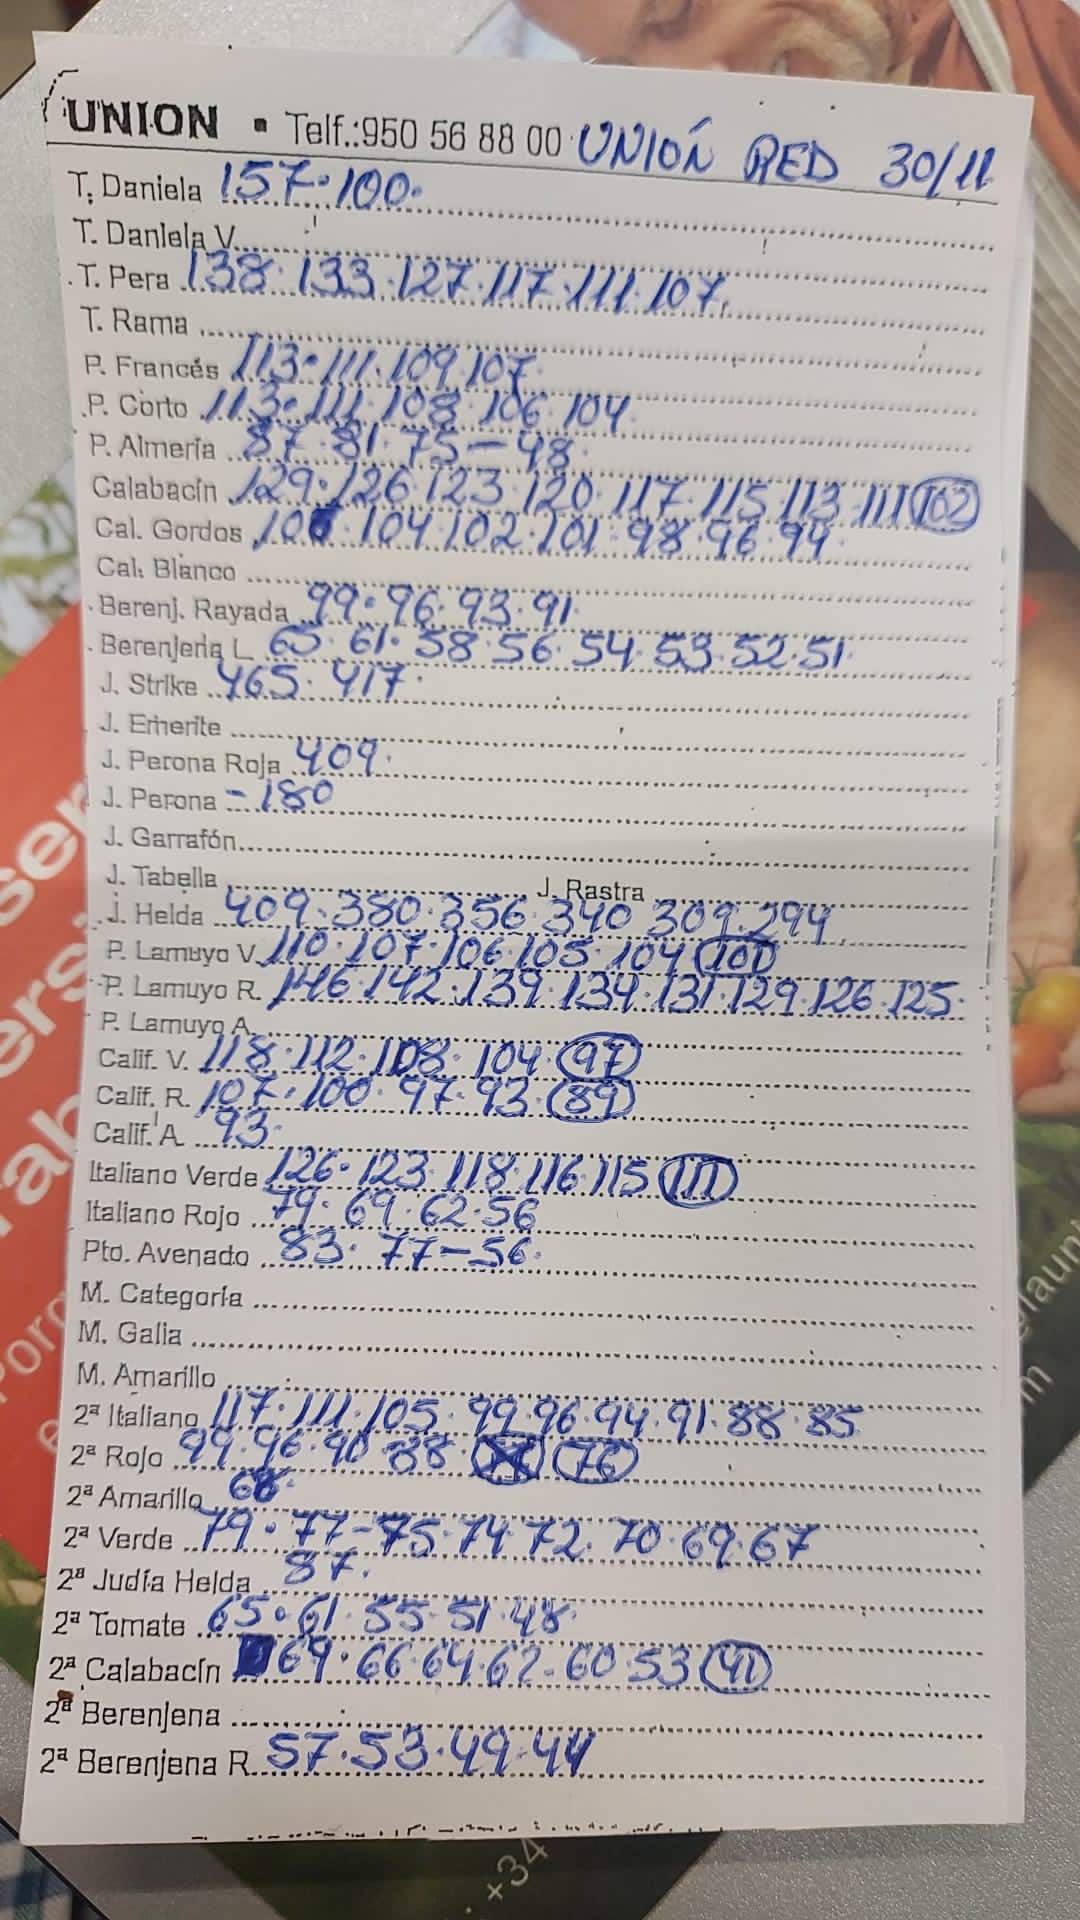 UNION • Telf.:950 56 88 00 UNIÓN RED 30/11
T. Daniela 157·100·
T. Daniela V.
T. Pera 138·133·127·117·111·107.
T. Rama
P. Francés 113·111·109·107·
P. Corto 113·111·108·106·104
P. Almería 87·81·75-48·
Calabacín 129·126·123·120·117·115·113·111 102
Cal. Gordos 106·104·102·101·98·96·94·
Cal. Blanco
Berenj. Rayada 99·96·93·91·
Berenjena L 65·61·58·56·54·53·52·51·
J. Strike 465·417·
J. Emerite
J. Perona Roja 409·
J. Perona -180
J. Garrafón
J. Tabella J. Rastra
J. Helda 409·380·356·340·309·294
P. Lamuyo V. 110·107·106·105·104 100
P. Lamuyo R. 146·142·139·134·131·129·126·125·
P. Lamuyo A.
Calif. V. 118·112·108·104 97
Calif. R. 107·100·97·93· 89
Calif. A 93·
Italiano Verde 126·123·118·116·115 111
Italiano Rojo 79·69·62·56
Pto. Avenado 83·77-56·
M. Categoría
M. Galia
M. Amarillo
2ª Italiano 117·111·105·99·96·94·91·88·85
2ª Rojo 99·96·90·88 76
2ª Amarillo 68·
2ª Verde 79·77-75·74·72·70·69·67
2ª Judía Helda 87.
2ª Tomate 65·61·55·51·48·
2ª Calabacín 69·66·64·62-60·53 41
2ª Berenjena
2ª Berenjena R. 57·53·49·44
+34